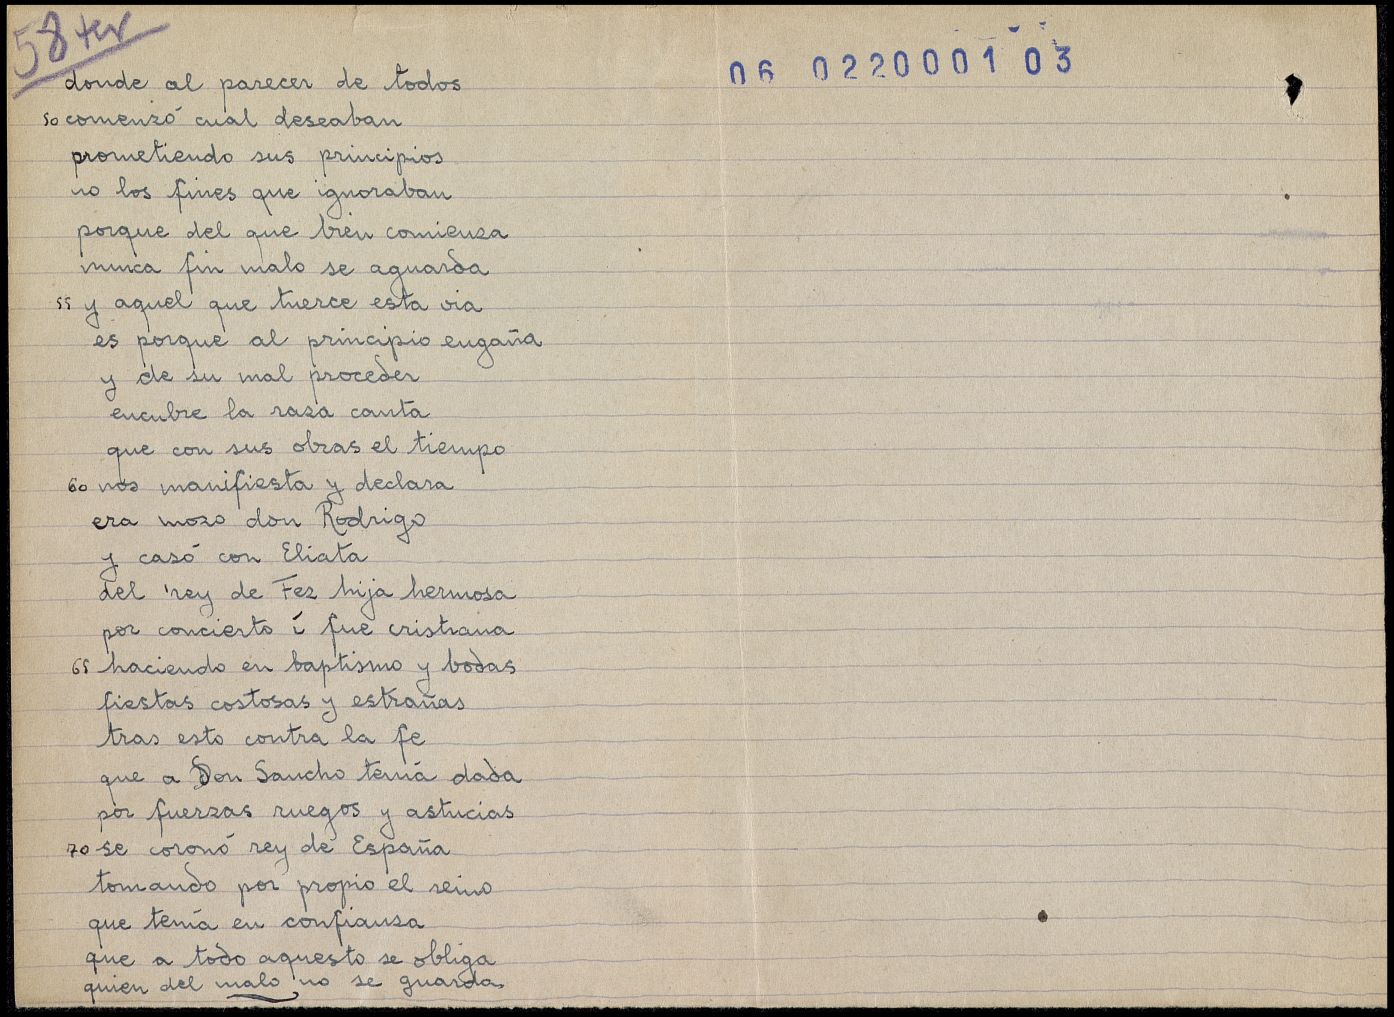 58 ter
06 022000103
donde al parecer de todos
50 comenzó cual deseaban
prometiendo sus principios
no los fines que ignoraban
porque del que bien comienza
nunca fin malo se aguarda
55 y aquel que tuerce esta via
es porque al principio engaña
y de su mal proceder
encubre la raza canta
que con sus obras el tiempo
60 nos manifiesta y declara
era mozo don Rodrigo
y casó con Eliata
del rey de Fez hija hermosa
por concierto i fue cristiana
65 haciendo en baptismo y bodas
fiestas costosas y estrañas
tras esto contra la fe
que a Don Sancho tenía dada
por fuerzas ruegos y astucias
70 se coronó rey de España
tomando por propio el reino
que tenía en confianza
que a todo aquesto se obliga
quien del malo no se guarda